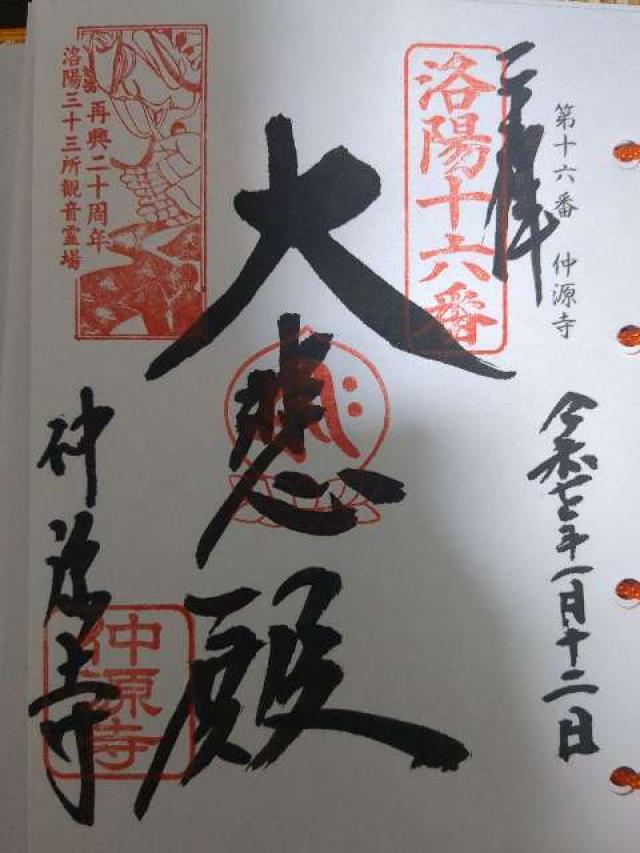 第十六番　仲源寺
令和七年一月十二日
奉拝
洛陽十六番
大悲殿
再興二十周年
洛陽三十三所観音霊場
仲源寺
仲源寺